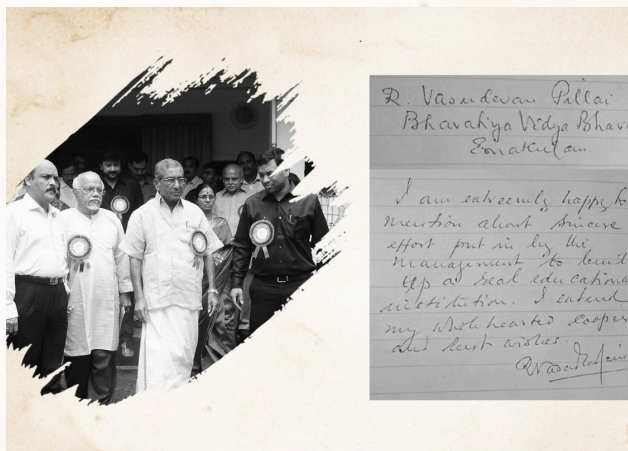 R. Vasudevan Pillai
Bharatiya Vidya Bhava
Ernakulam.
I am extreemly happy to
mention about sincere
effort put in by the
management to build
up a real educationa
institution. I extend
my whole hearted cooper
and best wishes.